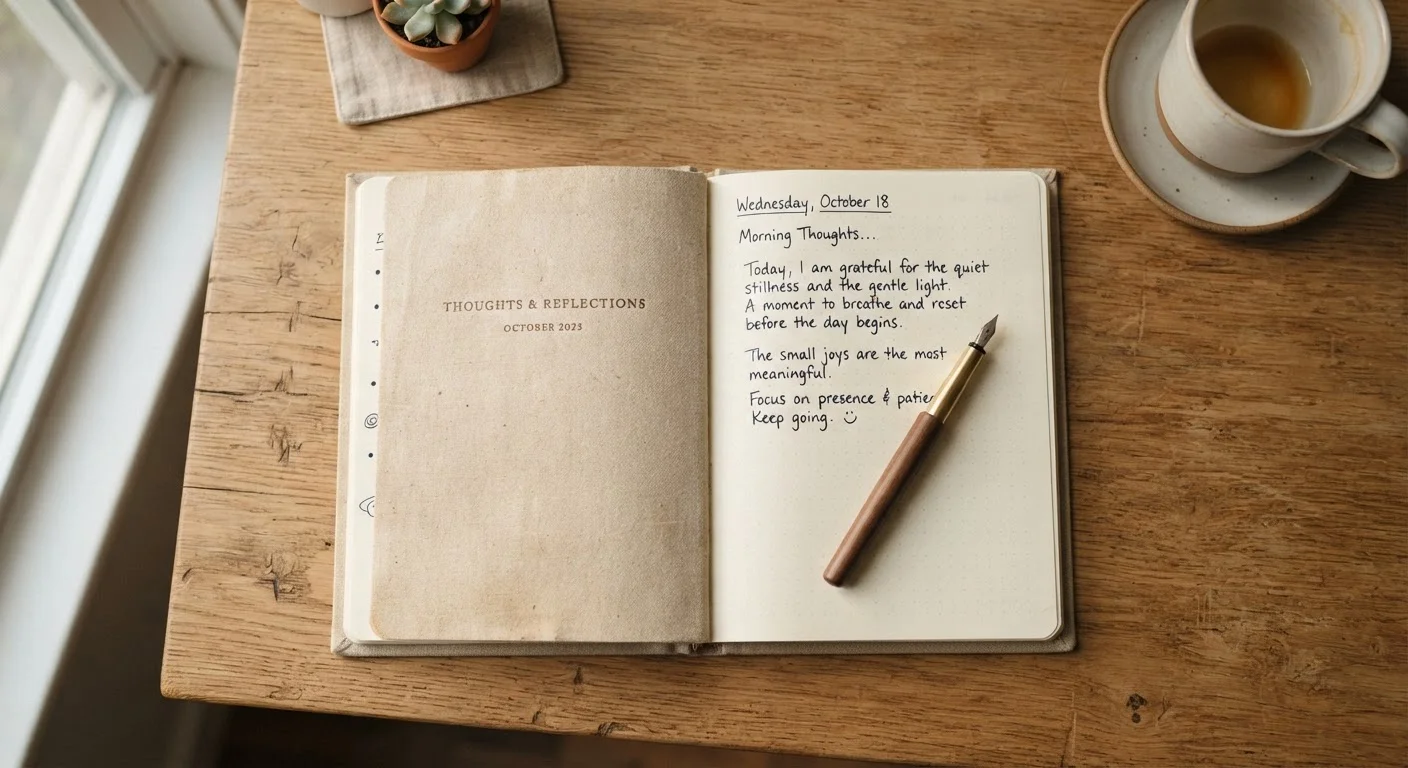 THOUGHTS & REFLECTIONS
OCTOBER 2023
Wednesday, October 18
Morning Thoughts...
Today, I am grateful for the quiet
stillness and the gentle light.
A moment to breathe and reset
before the day begins.
The small joys are the most
meaningful.
Focus on presence &
Keep going.